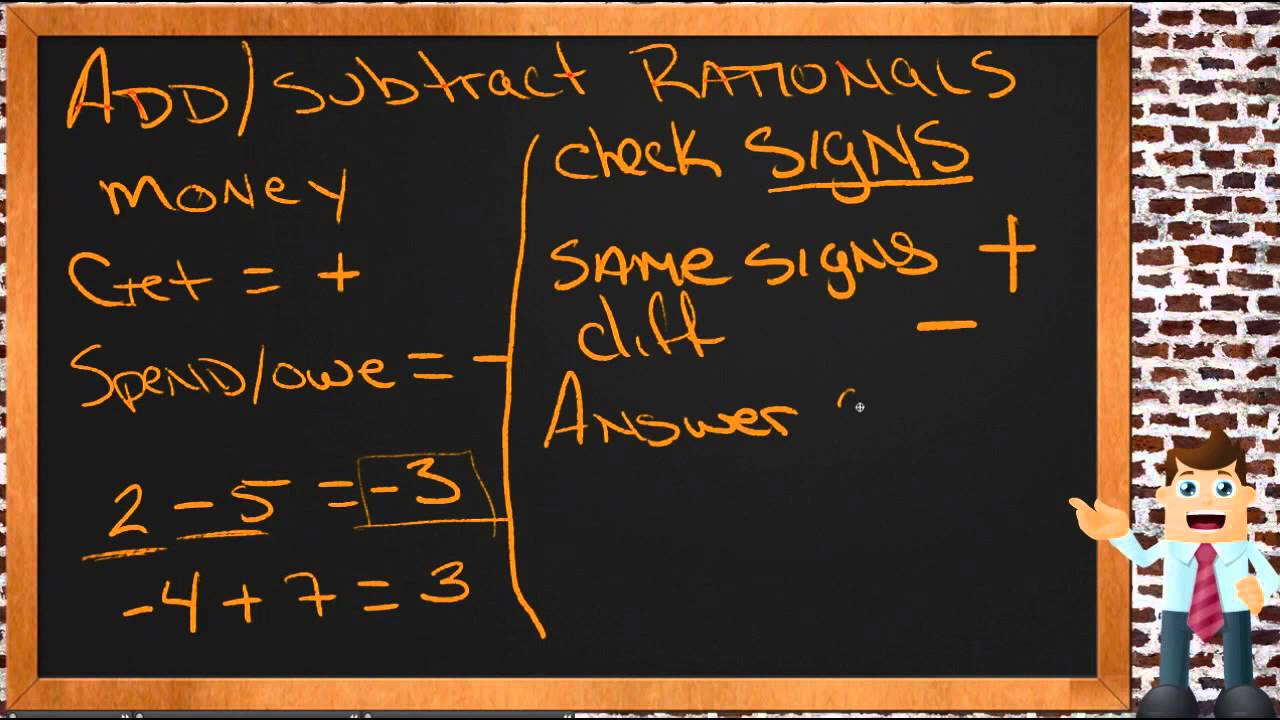 ADD/subtract RATIONALS
MONEY
Get = +
SPEND/owe = -
2 - 5 = -3
-4 + 7 = 3
check SIGNS
SAME SIGNS +
diff -
Answer